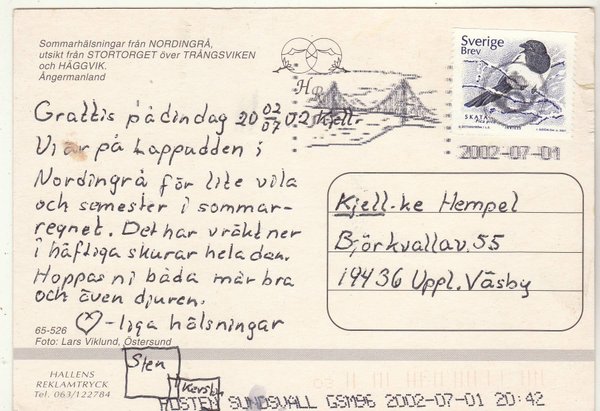 Sommarhälsningar från NORDINGRÅ,
utsikt från STORTORGET över TRÅNGSVIKEN
och HÄGGVIK.
Ångermanland
Sverige
Brev
SKATA
2002-07-01
Grattis på dindag 20 02/07 02 Kjell.
Vi är på Lappudden i
Nordingrå för lite vila
och semester i sommar-
regnet. Det har vräkt ner
i häftiga skurar hela dan.
Hoppas ni båda mår bra
och även djuren.
-liga hälsningar
Sten
Kersti
Kjell-ke Hempel
Björkvallav. 55
19436 Uppl. Väsby
65-526
Foto: Lars Viklund, Östersund
HALLENS
REKLAMTRYCK
Tel. 063/122784
POSTEN SUNDSVALL GSM96 2002-07-01 20:42